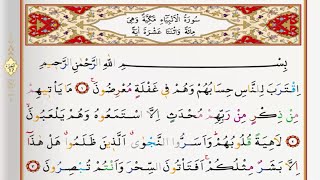 سُورَةُ الْاَنْبِيَاءِ مَكِّيَّةٌ وَهِيَ
مِائَةٌ وَاثْنَتَا عَشْرَةَ اٰيَةً
بِسْمِ اللّٰهِ الرَّحْمٰنِ الرَّحِيمِ
اِقْتَرَبَ لِلنَّاسِ حِسَابُهُمْ وَهُمْ فِي غَفْلَةٍ مُعْرِضُونَ مَا يَأْتِيهِمْ
مِنْ ذِكْرٍ مِنْ رَبِّهِمْ مُحْدَثٍ اِلَّا اسْتَمَعُوهُ وَهُمْ يَلْعَبُونَ
لَاهِيَةً قُلُوبُهُمْ وَاَسَرُّوا النَّجْوَى الَّذِينَ ظَلَمُوا هَلْ هٰذَا
اِلَّا بَشَرٌ مِثْلُكُمْ اَفَتَأْتُونَ السِّحْرَ وَاَنْتُمْ تُبْصِرُونَ